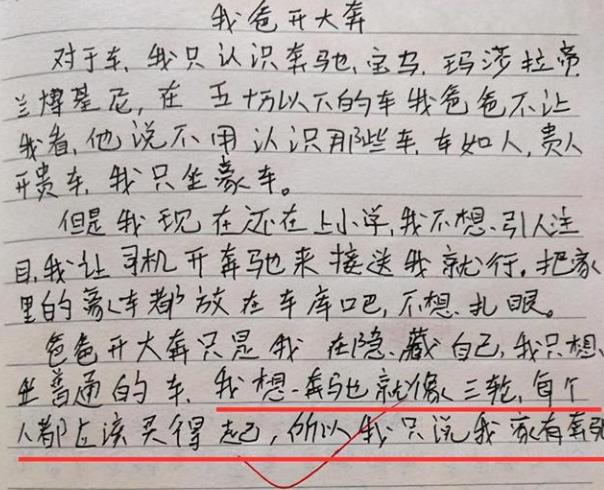 我爸开大奔
对于车,我只认识奔驰,宝马,玛莎拉帝
兰博基尼,在五十万以下的车我爸爸不让
我看,他说不用认识那些车,车如人,贵人
开贵车,我只坐豪车。
但是我现在还在上小学,我不想引人注
目,我让司机开奔驰来接送我就行。把家
里的豪车都放在车库吧,不想扎眼。
爸爸开大奔只是我在隐藏自己,我只想
坐普通的车,我想奔驰就像三轮,每个
人都应该买得起,所以我只说我家有奔驰